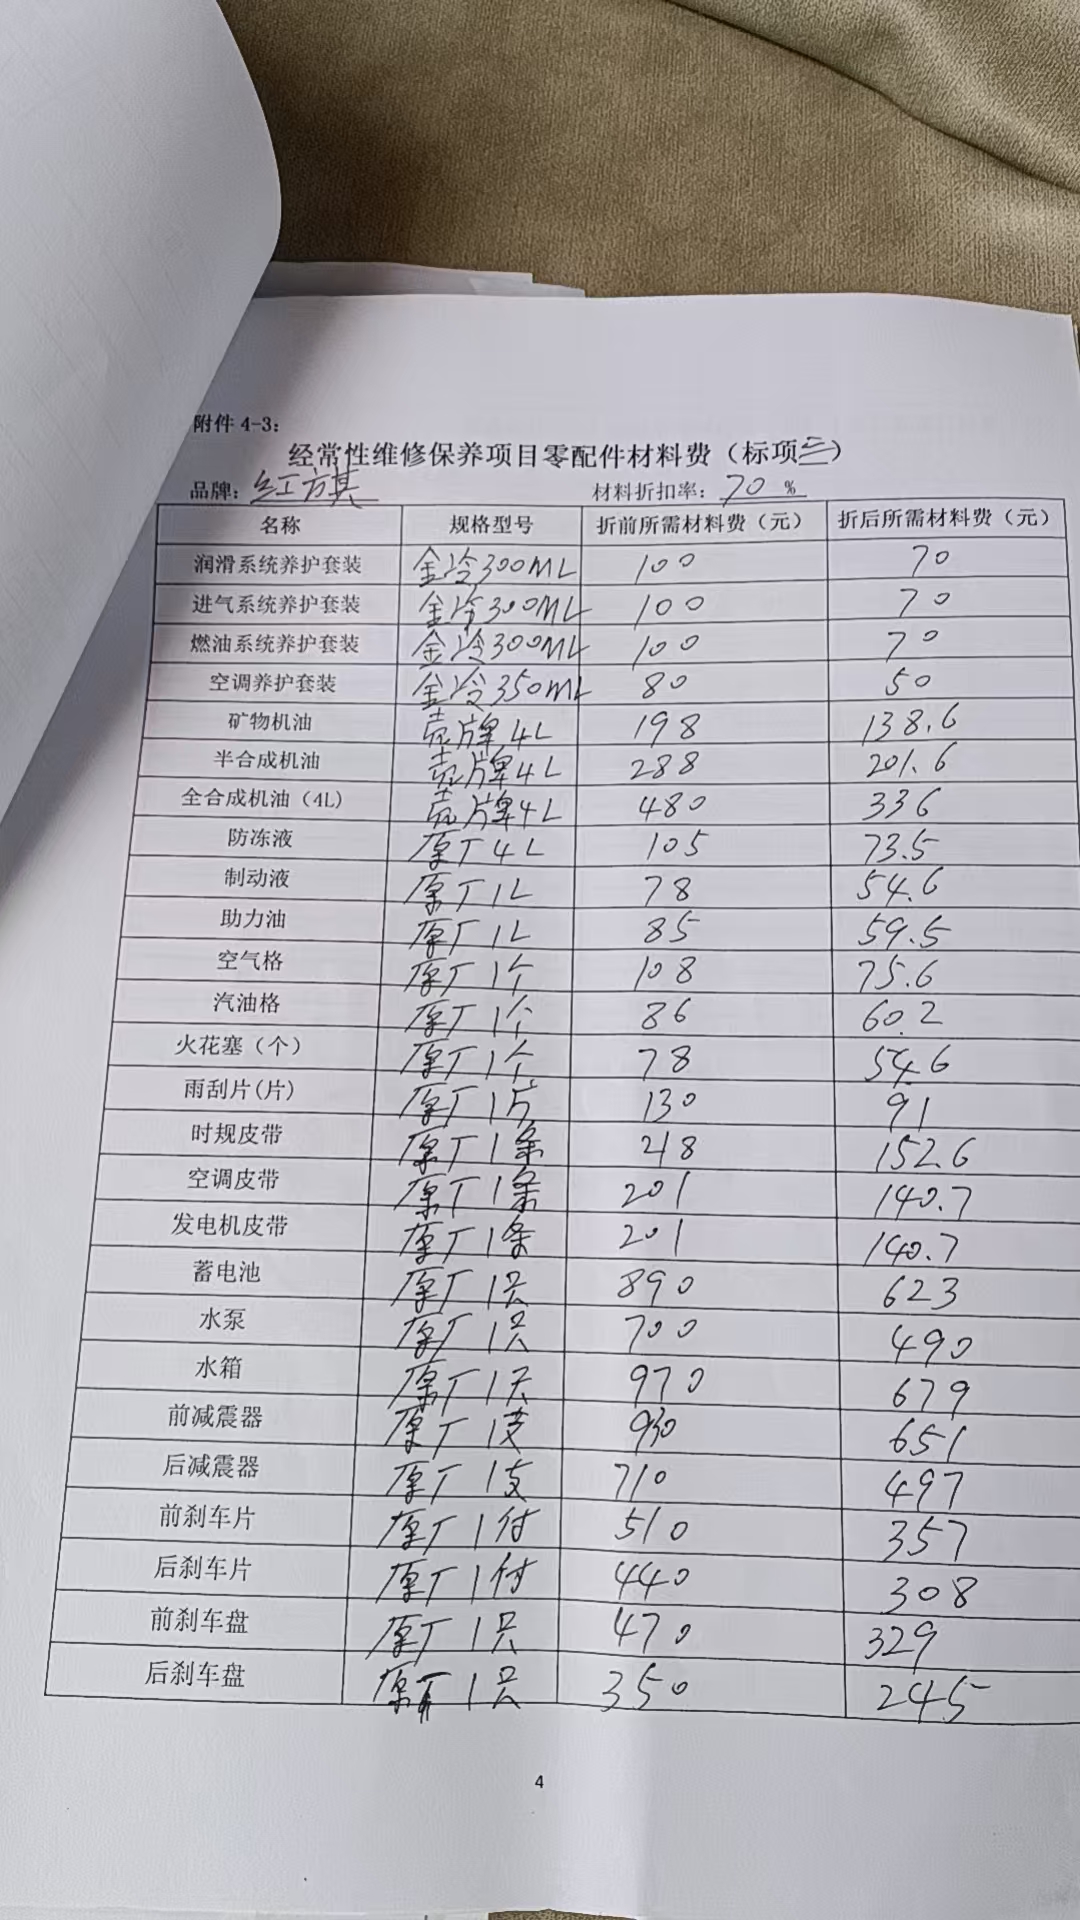 附件 4-3:
经常性维修保养项目零配件材料费（标项三）
品牌: 红旗 材料折扣率: 70 %
名称 规格型号 折前所需材料费（元） 折后所需材料费（元）
润滑系统养护套装 金冷300ML 100 70
进气系统养护套装 金冷300ML 100 70
燃油系统养护套装 金冷300ML 100 70
空调养护套装 金冷350ML 80 50
矿物机油 壳牌4L 198 138.6
半合成机油 壳牌4L 288 201.6
全合成机油（4L) 壳牌4L 480 336
防冻液 原厂4L 105 73.5
制动液 原厂1L 78 54.6
助力油 原厂1L 85 59.5
空气格 原厂1个 108 75.6
汽油格 原厂1个 86 60.2
火花塞（个） 原厂1个 78 54.6
雨刮片(片) 原厂1片 130 91
时规皮带 原厂1条 218 152.6
空调皮带 原厂1条 201 140.7
发电机皮带 原厂1条 201 140.7
蓄电池 原厂1只 890 623
水泵 原厂1只 700 490
水箱 原厂1只 970 679
前减震器 原厂1支 930 651
后减震器 原厂1支 710 497
前刹车片 原厂1付 510 357
后刹车片 原厂1付 440 308
前刹车盘 原厂1只 470 329
后刹车盘 原厂1只 350 245
4